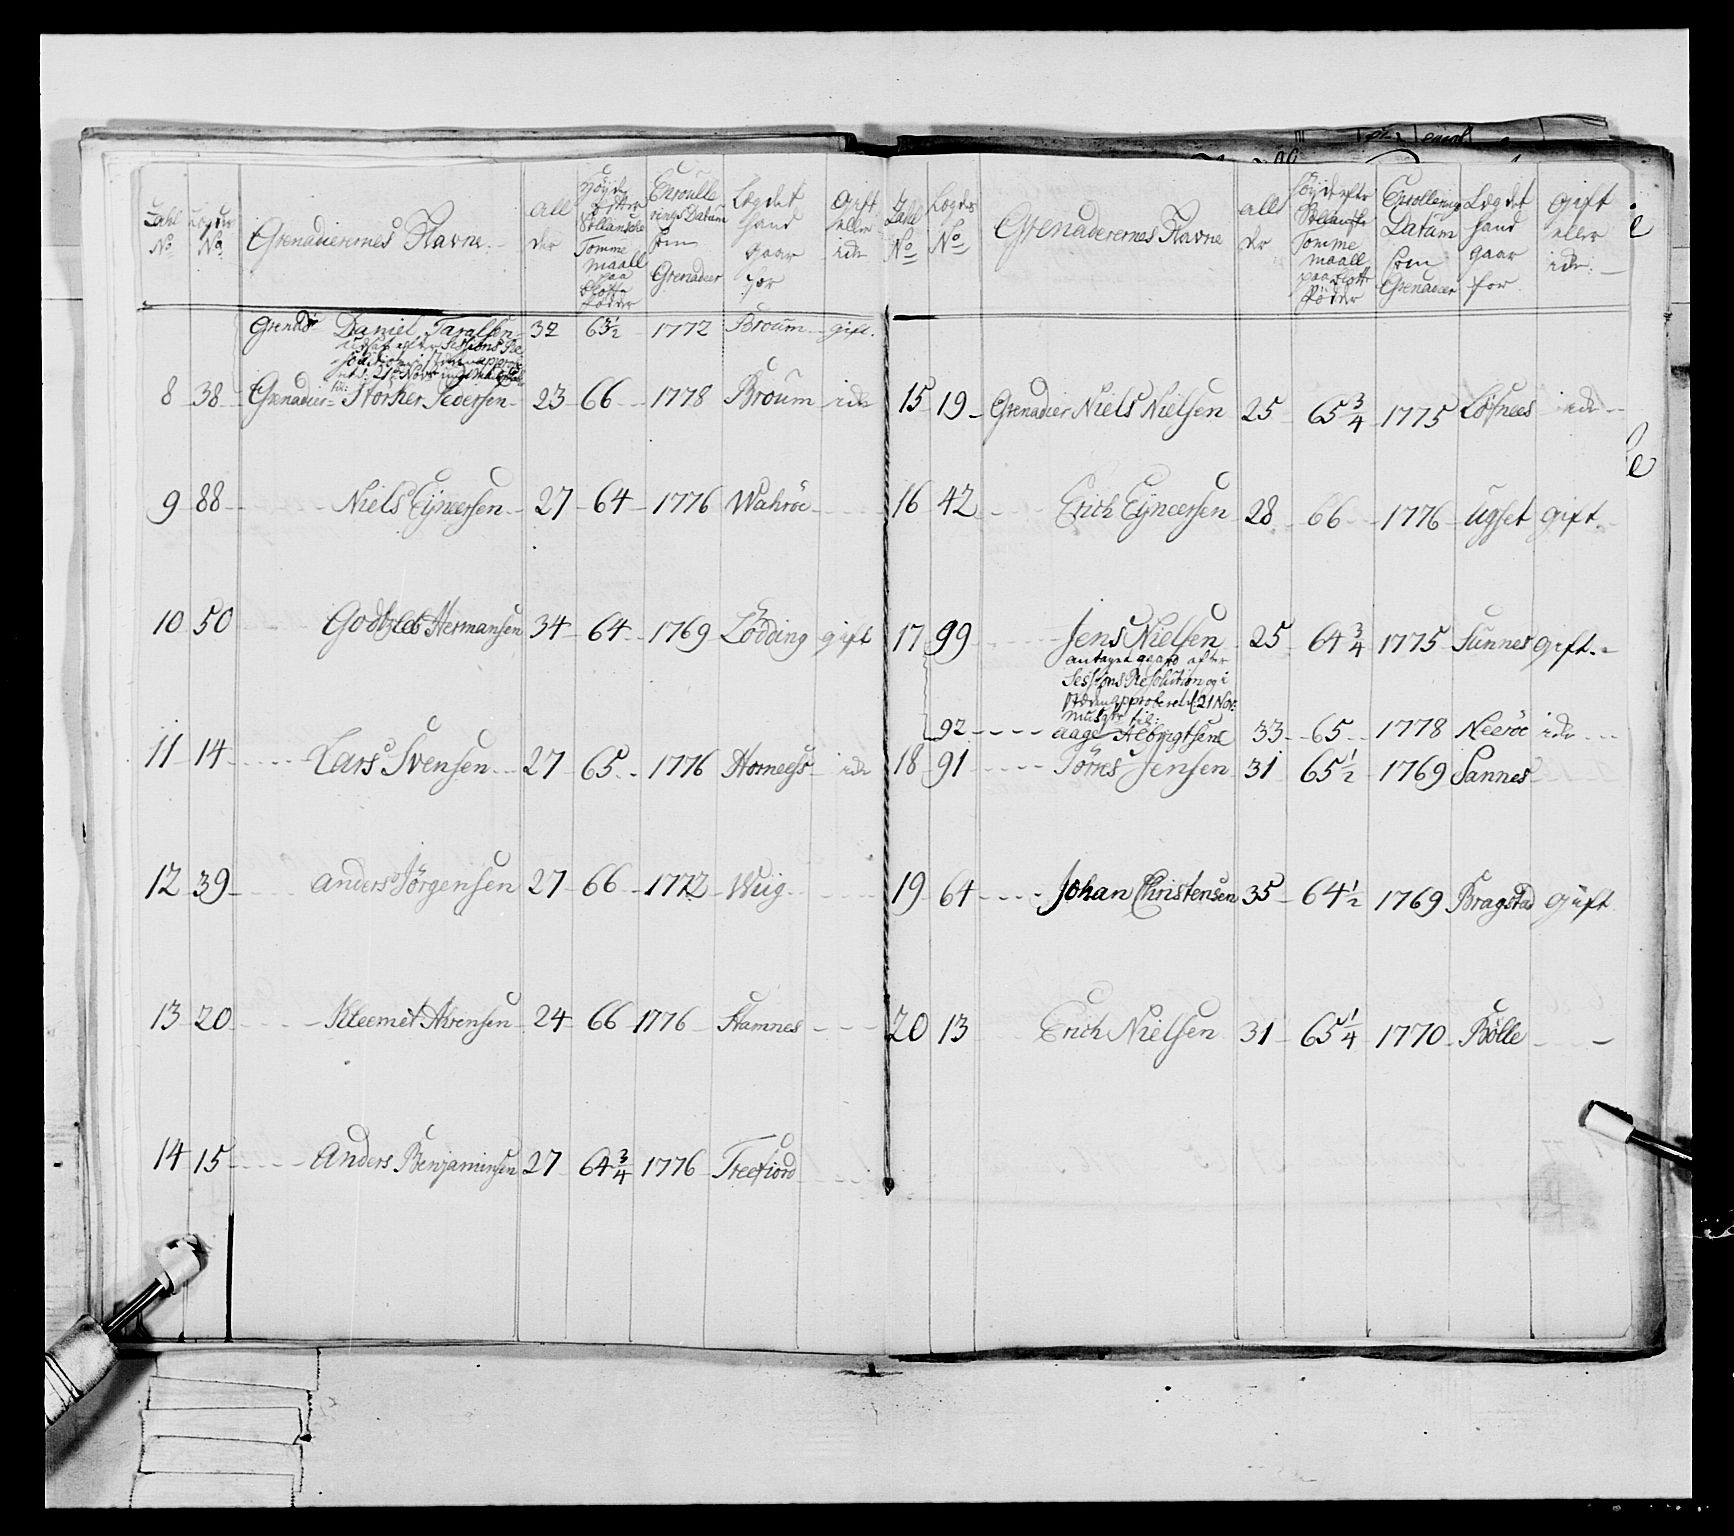 Tahl No
Lægder No
Grenadierernes Navne
Aller
Høyde efter Hollansche Tomme maall paa blotte Födder
Enroullerings Datum som Grenadeer
Lægdet hand gaar for
Gift eller iche
Grendr Daniel Taralsen 32 63½ 1772 Broum gift.
8 38 Grenadier Storker Pedersen 23 66 1778 Broum iche
9 88 Niels Eyneersen 27 64 1776 Wahröe
10 50 Godtzles Hermansen 34 64 1769 Lödding gift
11 14 Lars Svensen 27 65 1776 Hornees iche
12 39 Anders Jörgensen 27 66 1772 Wiig
13 20 Kleemet Ahrensen 24 66 1776 Stamnes
14 15 Anders Benjaminsen 27 64¾ 1776 Treefiord
Tahl No
Lægder No
Grenaderernes Navne
Aller
Høyde efter Hollanske Tomme maall paa blotte Födder
Enrollering Datum som Grenadeer
Lægdet hand gaar for
Gift eller iche
15 19 Grenadier Niels Nielsen 25 65¾ 1775 Löfnees iche
16 42 Erich Eyneersen 28 66 1776 Ugset gift
17 99 Jens Nielsen 25 64¾ 1775 Sunnes gift
antaget efter
Sessions Resolution og i
21 Nov:
til:
92 Aage Albrigtsen 33 65 1778 Neeröe iche
18 91 Törres Jensen 31 65½ 1769 Sannes
19 64 Johan Christensen 35 64½ 1769 Bragstad gift
20 13 Erich Nielsen 31 65¼ 1770 Bölle